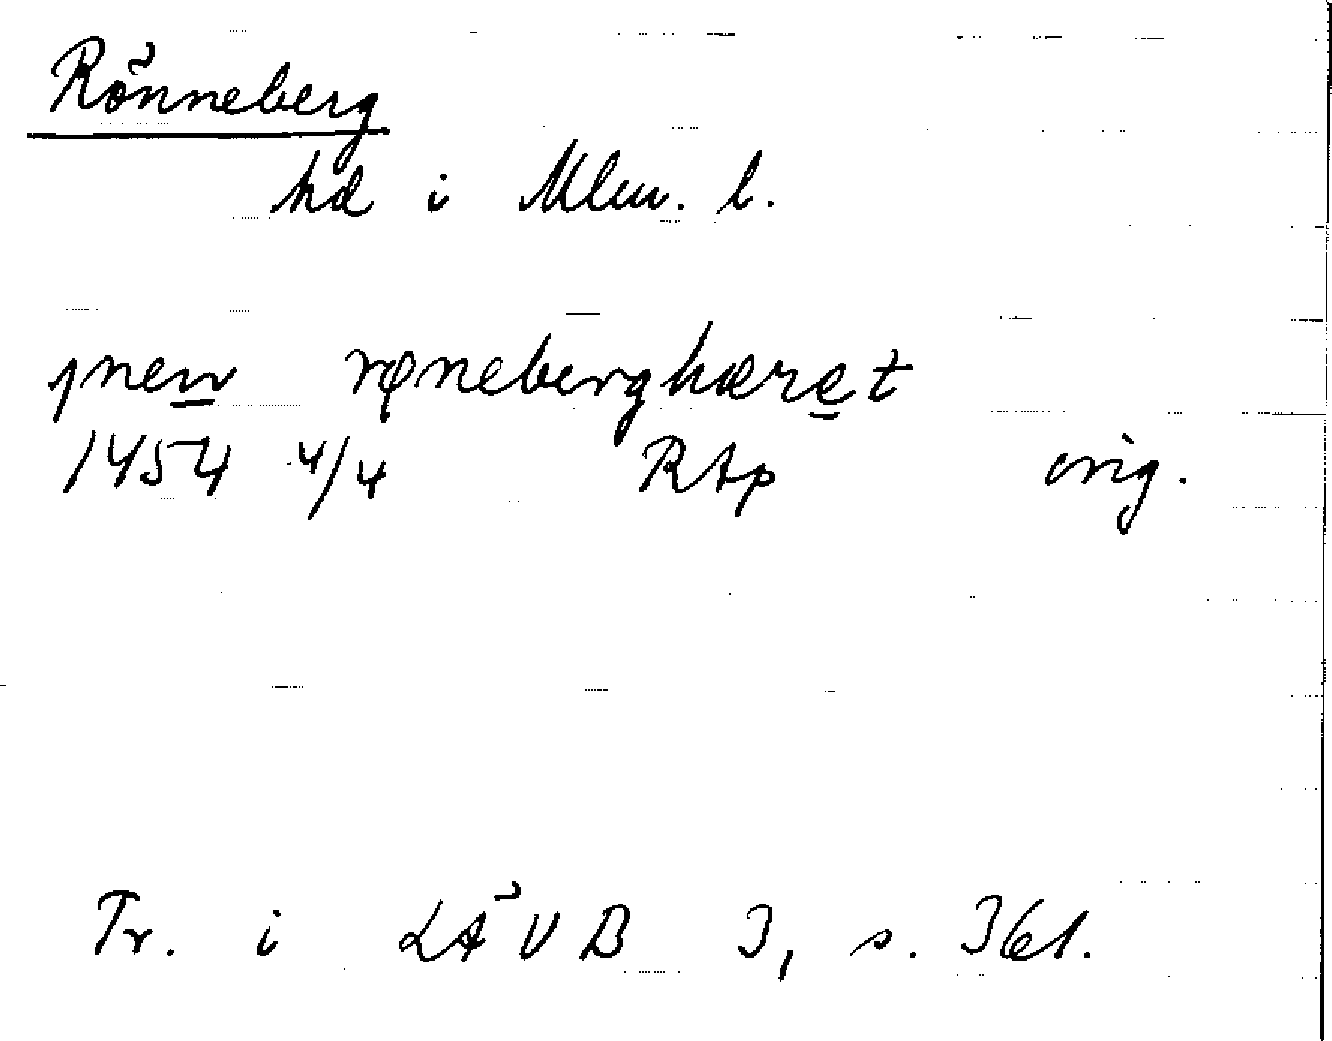 Rönneberg
hd i Mlm. l.
jnen røneberghæret
1454 4/4 RAp orig.
Tr. i LÄUB 3, s. 361.